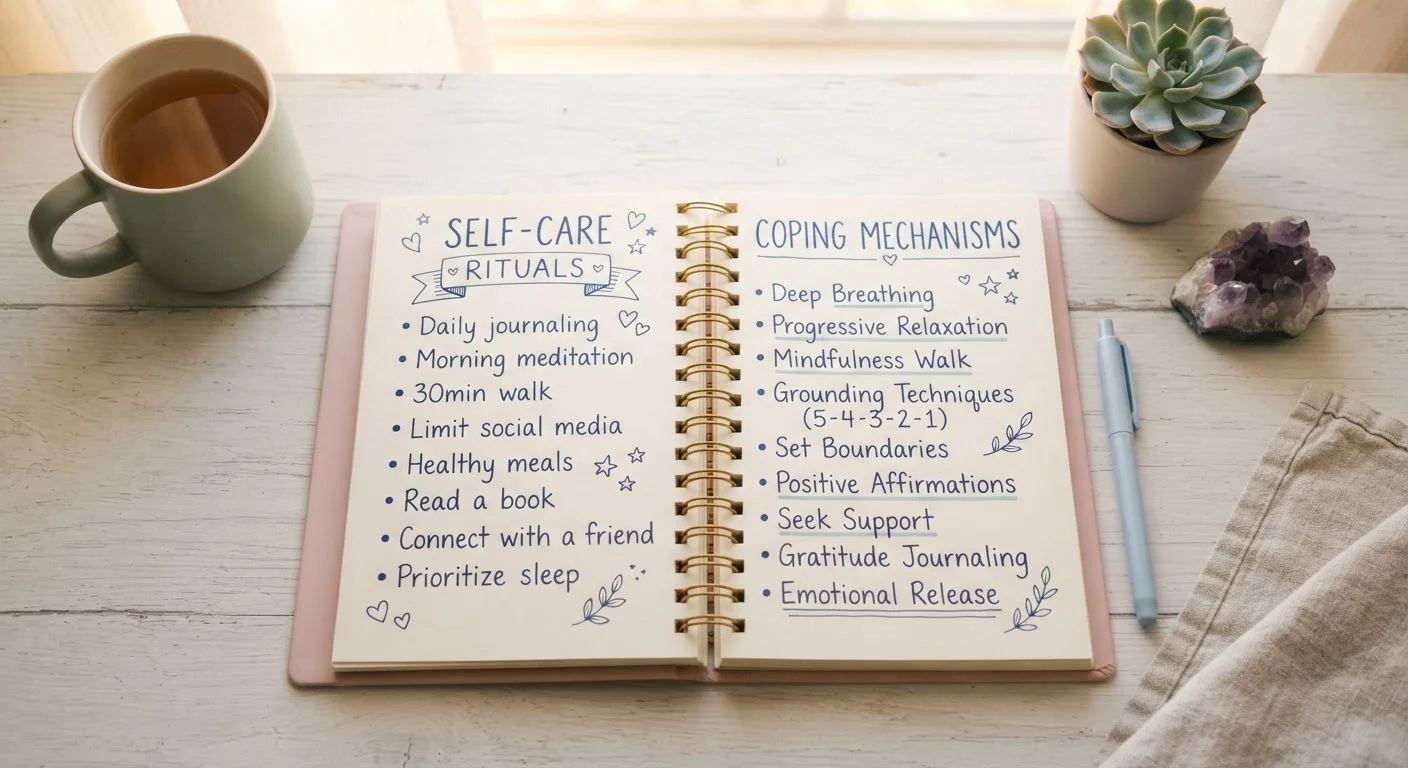 SELF-CARE
RITUALS
• Daily journaling
• Morning meditation
• 30min walk
• Limit social media
• Healthy meals
• Read a book
• Connect with a friend
• Prioritize sleep
COPING MECHANISMS
• Deep Breathing
• Progressive Relaxation
• Mindfulness Walk
• Grounding Techniques
(5-4-3-2-1)
• Set Boundaries
• Positive Affirmations
• Seek Support
• Gratitude Journaling
• Emotional Release